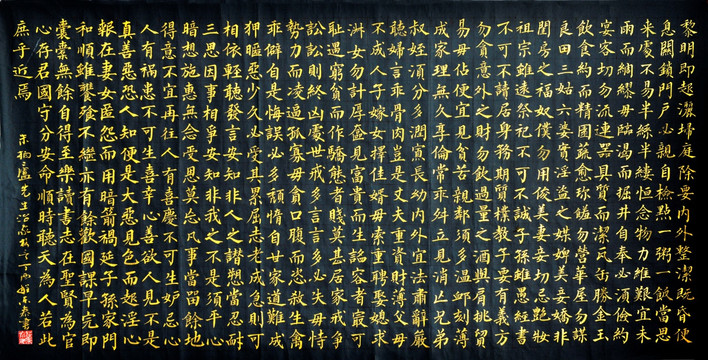 黎明即起灑掃庭除要內外整潔既昏便
息關鎖門戶必親自檢點一粥一飯當思
來處不易半絲半縷恒念物力維艱宜未
雨而綢繆毋臨渴而掘井自奉必須儉約
宴客切勿流連器具質而潔瓦缶勝金玉
飲食約而精園蔬愈珍饈勿營華屋勿謀
良田三姑六婆實淫盜之媒婢美妾嬌非
閨房之福奴僕勿用俊美妻妾切忌艷妝
祖宗雖遠祭祀不可不誠子孫雖愚經書
不可不讀居身務期質樸教子要有義方
勿貪意外之財勿飲過量之酒與肩挑貿
易毋佔便宜見貧苦親鄰須多溫卹刻薄
成家理無久享倫常乖舛立見消亡兄弟
叔姪須分多潤寡長幼內外宜法肅辭嚴
聽婦言乖骨肉豈是丈夫重資財薄父母
不成人子嫁女擇佳婿毋索重聘娶媳求
淑女勿計厚奩見富貴而生諂容者最可
耻遇窮貧而作驕態者賤莫甚居家戒爭
訟訟則終凶處世戒多言言多必失毋恃
勢力而凌逼孤寡毋貪口腹而恣殺生禽
乖僻自是悔誤必多頹惰自甘家道難成
狎暱惡少久必受其累屈志老成急則可
相依輕聽發言安知非人之譖愬當忍耐
三思因事相爭安知非我之不是須平心
暗想施惠無念受恩莫忘凡事當留餘地
得意不宜再往人有喜慶不可生妒忌心
人有禍患不可生喜幸心善欲人見不是
真善惡恐人知便是大惡見色而起淫心
報在妻女匿怨而用暗箭禍延子孫家門
和順雖饔飧不繼亦有餘歡國課早完即
囊橐無餘自得至樂讀書志在聖賢為官
心存君國守分安命順時聽天為人若此
庶乎近焉
朱柏廬先生治家格言